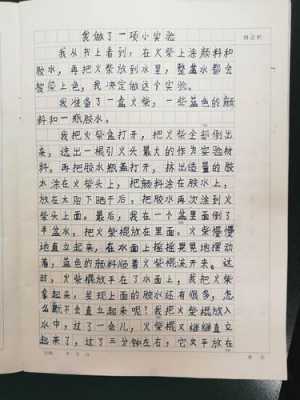 我做了一项小实验
我从书上看到：在火柴上涂颜料和
胶水，再把火柴放到水里，整盆水都会
被染上色，我决定做这个实验。
我准备了一盒火柴，一些蓝色的颜
料和一瓶胶水。
我把火柴盒打开，把火柴全部倒出
来，选出一根引火头最大的作为实验材
料。再把胶水瓶盖打开，挤出适量的胶
水涂在火柴头上，把颜料涂在胶水上，
放在太阳下晒干后，把胶水再次涂到火
柴头上面。最后，我在一个盆里面倒了
半盆水，把火柴放在里面。火柴慢慢
地直立起来，在水面上摇摇晃晃地摆动
着，蓝色的颜料顺着火柴棍流开来。这
时，火柴棍放平在了水面上，我把火柴
拿起来，发现上面的胶水还有很多，怎
么就不会直立起来呢？我把火柴棍放入
水中，过了一会儿，火柴棍又继续直立
起来了，过了三分钟左右，它又平放在